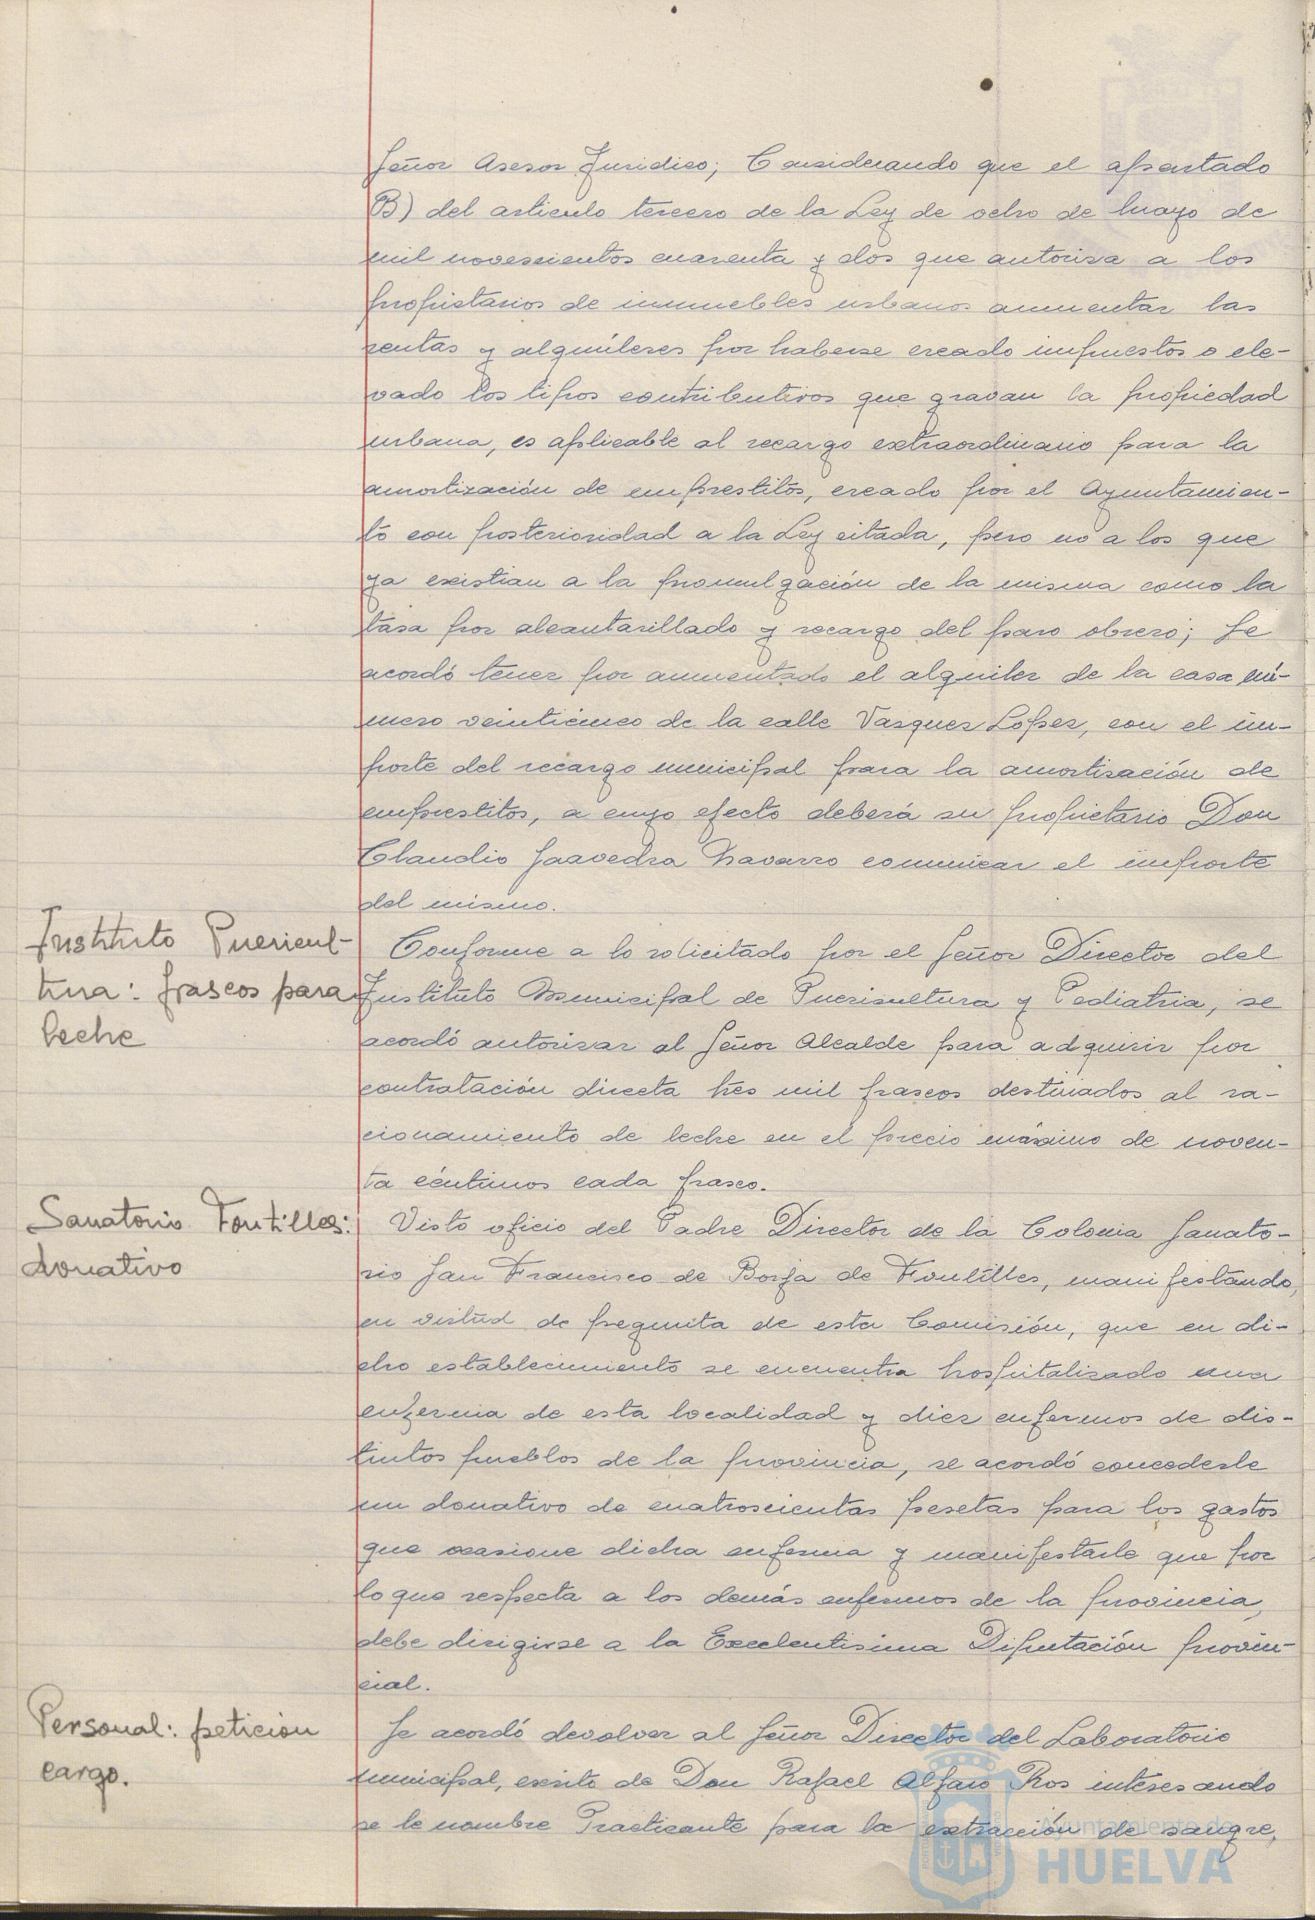 Señor Asesor Juridico; Considerando que el apartado
B) del articulo tercero de la Ley de ocho de mayo de
mil novescientos cuarenta y dos que autoriza a los
propietarios de inmuebles urbanos aumentar las
rentas y alquileres por haberse creado impuestos o ele-
vado los tipos contributivos que gravan la propiedad
urbana, es aplicable al recargo extraordinario para la
amortización de empréstitos, creado por el Ayuntamien-
to con posterioridad a la Ley citada, pero no a los que
ya existian a la promulgación de la misma como la
tasa por alcantarillado y recargo del paro obrero; Se
acordó tener por aumentado el alquiler de la casa nú-
mero veinticinco de la calle Vasquez Lopez, con el im-
porte del recargo municipal para la amortización de
emprestitos, a cuyo efecto deberá su propietario Don
Claudio Saavedra Navarro comunicar el importe
del mismo.
Instituto Puericul-
tura: frascos para
leche
Conforme a lo solicitado por el Señor Director del
Instituto Municipal de Puericultura y Pediatria, se
acordó autorizar al Señor Alcalde para adquirir por
contratación directa tres mil frascos destinados al ra-
cionamiento de leche en el precio máximo de noven-
ta céntimos cada frasco.
Sanatorio Fontilles:
donativo
Visto oficio del Padre Director de la Colonia Sanato-
rio San Francisco de Borja de Fontilles, manifestando,
en virtud de pregunta de esta Comisión, que en di-
cho establecimiento se encuentra hospitalizado una
enferma de esta localidad y diez enfermos de dis-
tintos pueblos de la provincia, se acordó concederle
un donativo de cuatroscientas pesetas para los gastos
que ocasione dicha enferma y manifestarle que por
lo que respecta a los demás enfermos de la provincia,
debe dirigirse a la Excelentisima Diputación provin-
cial.
Personal: petición
cargo.
Se acordó devolver al Señor Director del Laboratorio
municipal, escrito de Don Rafael Alfaro Ros interesando
se le nombre Practicante para la extracción de sangre,
Ayuntamiento de
HUELVA